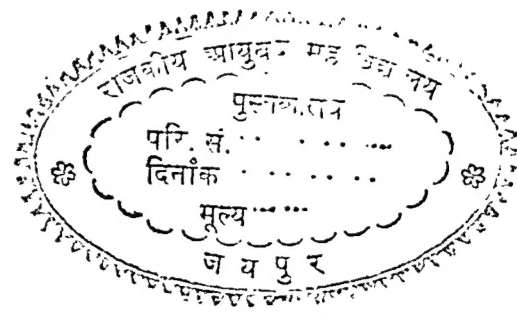 राजकीय आयुर्वेद महाविद्यालय
पुस्तकालय
परि. सं. .. . . . ...
दिनाँक . . . . . . .
मूल्य ... ...
ज य पु र